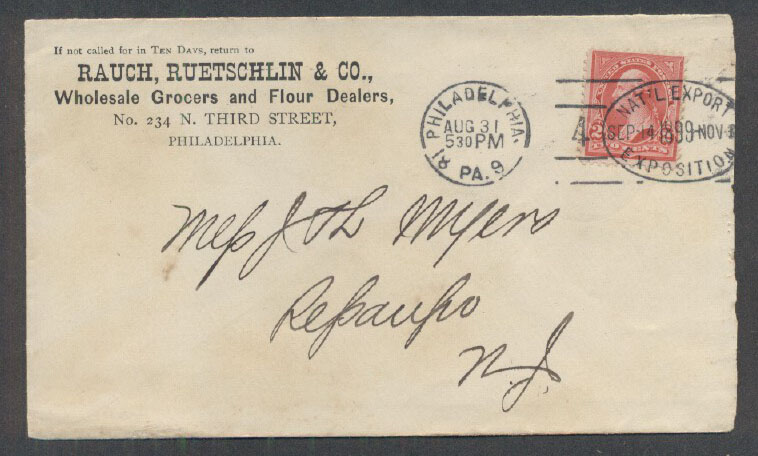 If not called for in TEN DAYS, return to
RAUCH, RUETSCHLIN & CO.,
Wholesale Grocers and Flour Dealers,
No. 234 N. THIRD STREET,
PHILADELPHIA.
PHILADELPHIA.
AUG 31
5 30 PM
PA. 9
4
NAT'L. EXPORT
SEP. 14 1899 NOV.
EXPOSITION
2 CENTS
Myers
Repaupo
N. J.